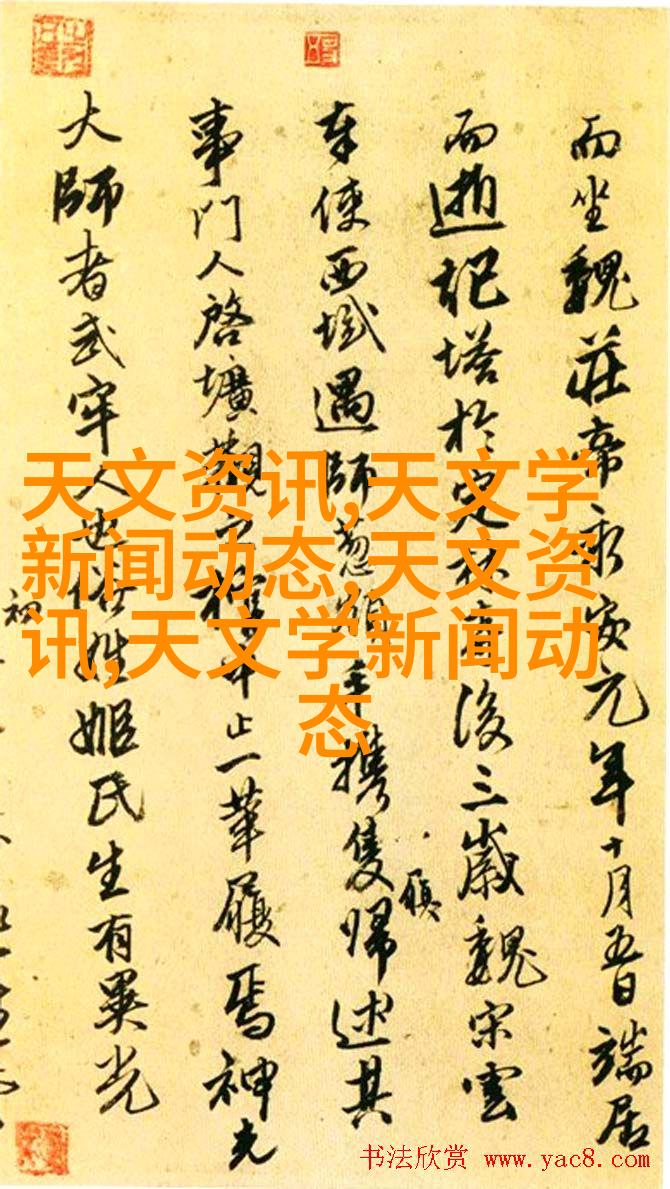 而坐魏莊帝永安元年十月五日端居
而逝記塔於定林寺後三歲魏宋雲
奉使西域遇師葱嶺手攜隻歸述其
履
事門人啓壙觀之棺中止一革履焉神光
大師者武牢人也俗姓姬氏生有異光
初
天文资讯,天文学
新闻动态,天文资
讯,天文学新闻动
态
书法欣赏 www.yac8.com